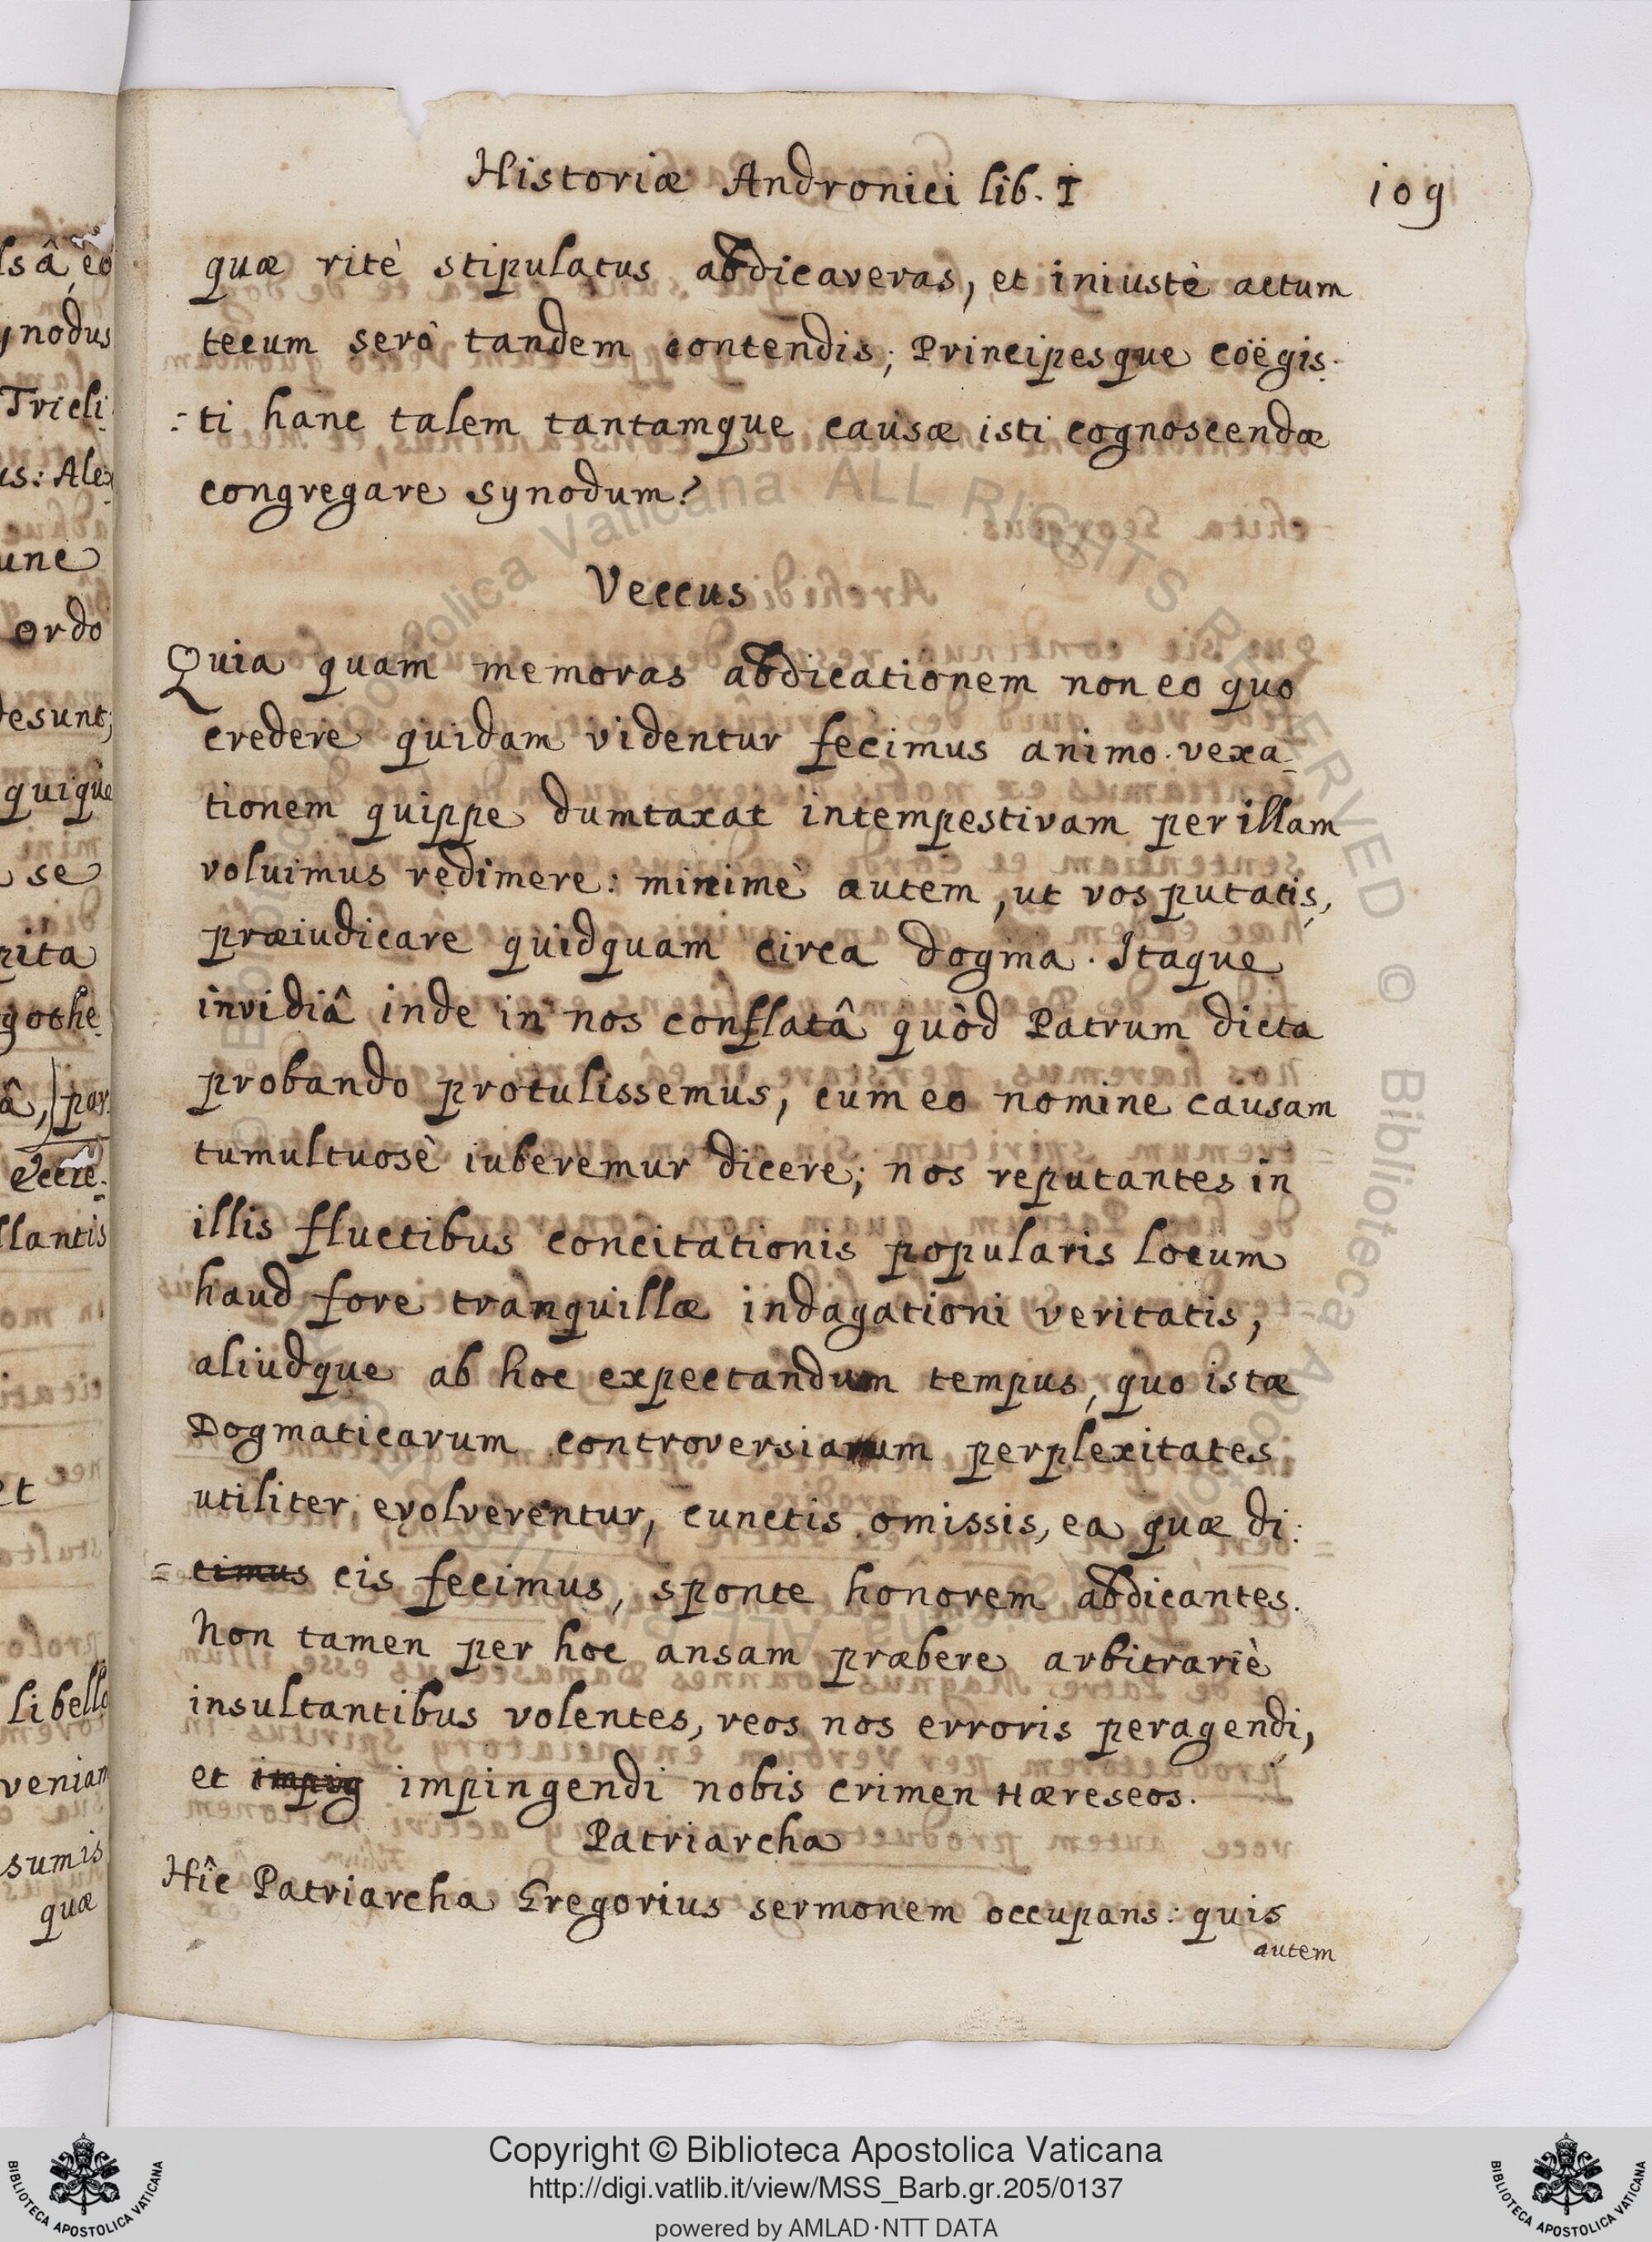 Historiæ Andronici lib. I 109
quæ ritè stipulatus abdicaveras, et iniustè actum
tecum serò tandem contendis; Principesque coëgis-
=ti hanc talem tantamque causæ isti cognoscendæ
congregare synodum?
Veccus
Quia quam memoras abdicationem non eo quo
credere quidam videntur fecimus animo. vexa-
tionem quippe dumtaxat intempestivam per illam
voluimus redimere: minimè autem, ut vos putatis,
præiudicare quidquam circa dogma. Itaque
invidiâ inde in nos conflatâ quòd Patrum dicta
probando protulissemus, cum eo nomine causam
tumultuosè iuberemur dicere; nos reputantes in
illis fluctibus concitationis popularis locum
haud fore tranquillæ indagationi veritatis,
aliudque ab hoc expectandum tempus, quo istæ
Dogmaticarum controversiarum perplexitates
utiliter evolverentur, cunctis omissis, ea quæ di:
= cimus cis fecimus, sponte honorem abdicantes.
Non tamen per hoc ansam præbere arbitrariè
insultantibus volentes, reos nos erroris peragendi,
et impig impingendi nobis crimen Hæreseos.
Patriarcha
Hîc Patriarcha Gregorius sermonem occupans: quis
autem
lsâ, eo
ynodus
Tricli
us: Alex
unc
ordo
desunt;
quique
se
rita
gothe
â, par
llantis
et
libello
veniam
sumis
quæ
Copyright © Biblioteca Apostolica Vaticana
http://digi.vatlib.it/view/MSS_Barb.gr.205/0137
powered by AMLAD·NTT DATA
BIBLIOTECA APOSTOLICA VATICANA
BIBLIOTECA APOSTOLICA VATICANA